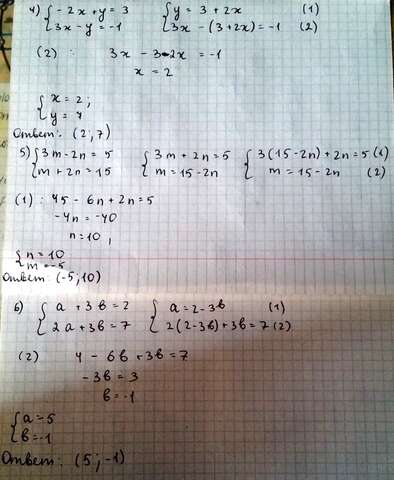 4) { -2x + y = 3    { y = 3 + 2x    (1)
{ 3x - y = -1    { 3x - (3+2x) = -1 (2)
(2) :    3x - 3 - 2x = -1
x = 2
{ x = 2 ;
{ y = 7
Ответ: (2; 7)
5) { 3m - 2n = 5    { 3m + 2n = 5    { 3(15 - 2n) + 2n = 5 (1)
{ m + 2n = 15    { m = 15 - 2n    { m = 15 - 2n    (2)
(1) : 45 - 6n + 2n = 5
-4n = -40
n = 10 ,
{ n = 10
{ m = -5
Ответ: (-5; 10)
6) { a + 3b = 2    { a = 2 - 3b    (1)
{ 2a + 3b = 7    { 2(2 - 3b) + 3b = 7 (2)
(2)    4 - 6b + 3b = 7
-3b = 3
b = -1
{ a = 5
{ b = -1
Ответ: (5; -1)